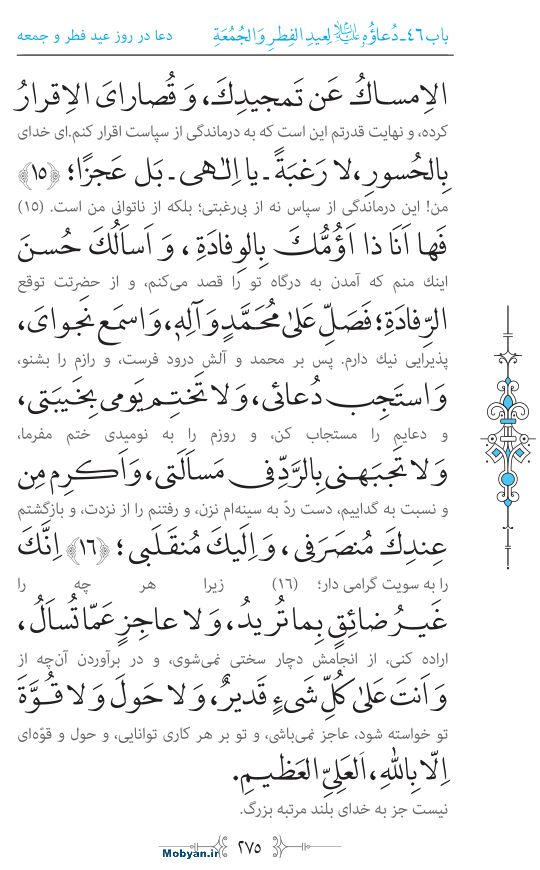 باب ٤٦ـ دُعاؤُه علیه‌السلام لِعیدِ الفِطرِ وَ الجُمُعَةِ دعا در روز عید فطر و جمعه
الاِمساكُ عَن تَمجیدِكَ، وَ قُصارایَ الاِقرارُ
کرده، و نهایت قدرتم این است که به درماندگی از سپاست اقرار کنم.ای خدای
بِالحُسورِ، لا رَغبَةً ـ یا اِلٰهی ـ بَل عَجزًا؛ ﴿١٥﴾
من! این درماندگی از سپاس نه از بی‌رغبتی؛ بلکه از ناتوانی من است. (١٥)
فَها اَنَا ذا اَؤُمُّكَ بِالوِفادَةِ، وَ اَسأَلُكَ حُسنَ
اینك منم که آمدن به درگاه تو را قصد می‌کنم، و از حضرتت توقع
الرِّفادَةِ؛ فَصَلِّ عَلیٰ مُحَمَّدٍ وَ آلِهٖ، وَ اسمَع نَجوایَ،
پذیرایی نیك دارم. پس بر محمد و آلش درود فرست، و رازم را بشنو،
وَ استَجِب دُعائی، وَ لا تَختِم یَومی بِخَیبَتی،
و دعایم را مستجاب کن، و روزم را به نومیدی ختم مفرما،
وَ لا تَجبَهنی بِالرَّدِّ فی مَسأَلَتی، وَ اَکرِم مِن
و نسبت به گداییم، دست ردّ به سینه‌ام نزن، و رفتنم را از نزدت، و بازگشتم
عِندِكَ مُنصَرَفی، وَ اِلَیكَ مُنقَلَبی؛ ﴿١٦﴾ اِنَّكَ
را به سویت گرامی دار؛ (١٦) زیرا هر چه را
غَیرُ ضائِقٍ بِما تُریدُ، وَ لا عاجِزٍ عَمّا تُسأَلُ،
اراده کنی، از انجامش دچار سختی نمی‌شوی، و در برآوردن آن‌چه از
وَ اَنتَ عَلیٰ کُلِّ شَیءٍ قَدیرٌ، وَ لا حَولَ وَ لا قُوَّةَ
تو خواسته شود، عاجز نمی‌باشی، و تو بر هر کاری توانایی، و حول و قوّه‌ای
اِلّا بِاللهِ، العَلِیِّ العَظیمِ.
نیست جز به خدای بلند مرتبه بزرگ.
٢٧٥
Mobyan.ir